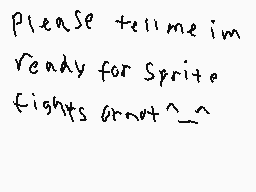 please tell me im
ready for Sprite
fights or not ^_^